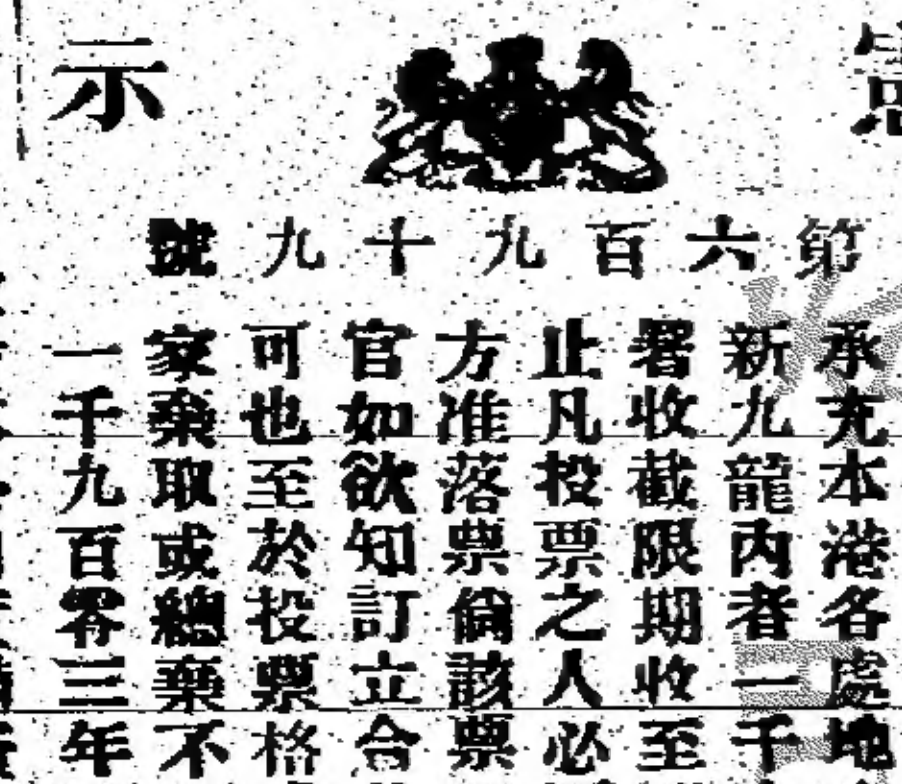 示
第六百九十九號
承充本港各處地
新九龍內者一千
署收截限期收至
止凡投票之人必
方准落票倘該票
官如欲知訂立合
可也至於投票格
家棄取或總棄不
一千九百零三年